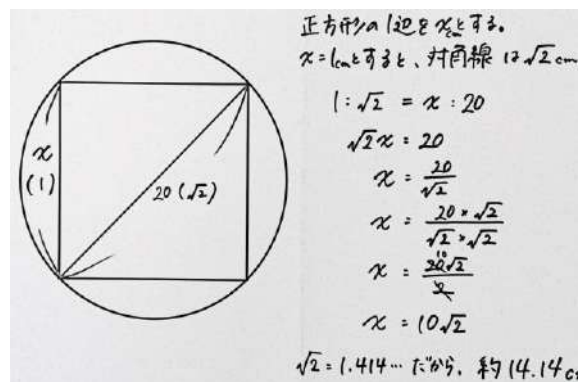 x
(1)
20(√2)
正方形の1辺をxcmとする。
x=1cmとすると、対角線は√2cm
1:√2 = x:20
√2x = 20
x = 20/√2
x = 20×√2/√2×√2
x = 20√2/2 10
x = 10√2
√2=1.414…だから、約14.14c